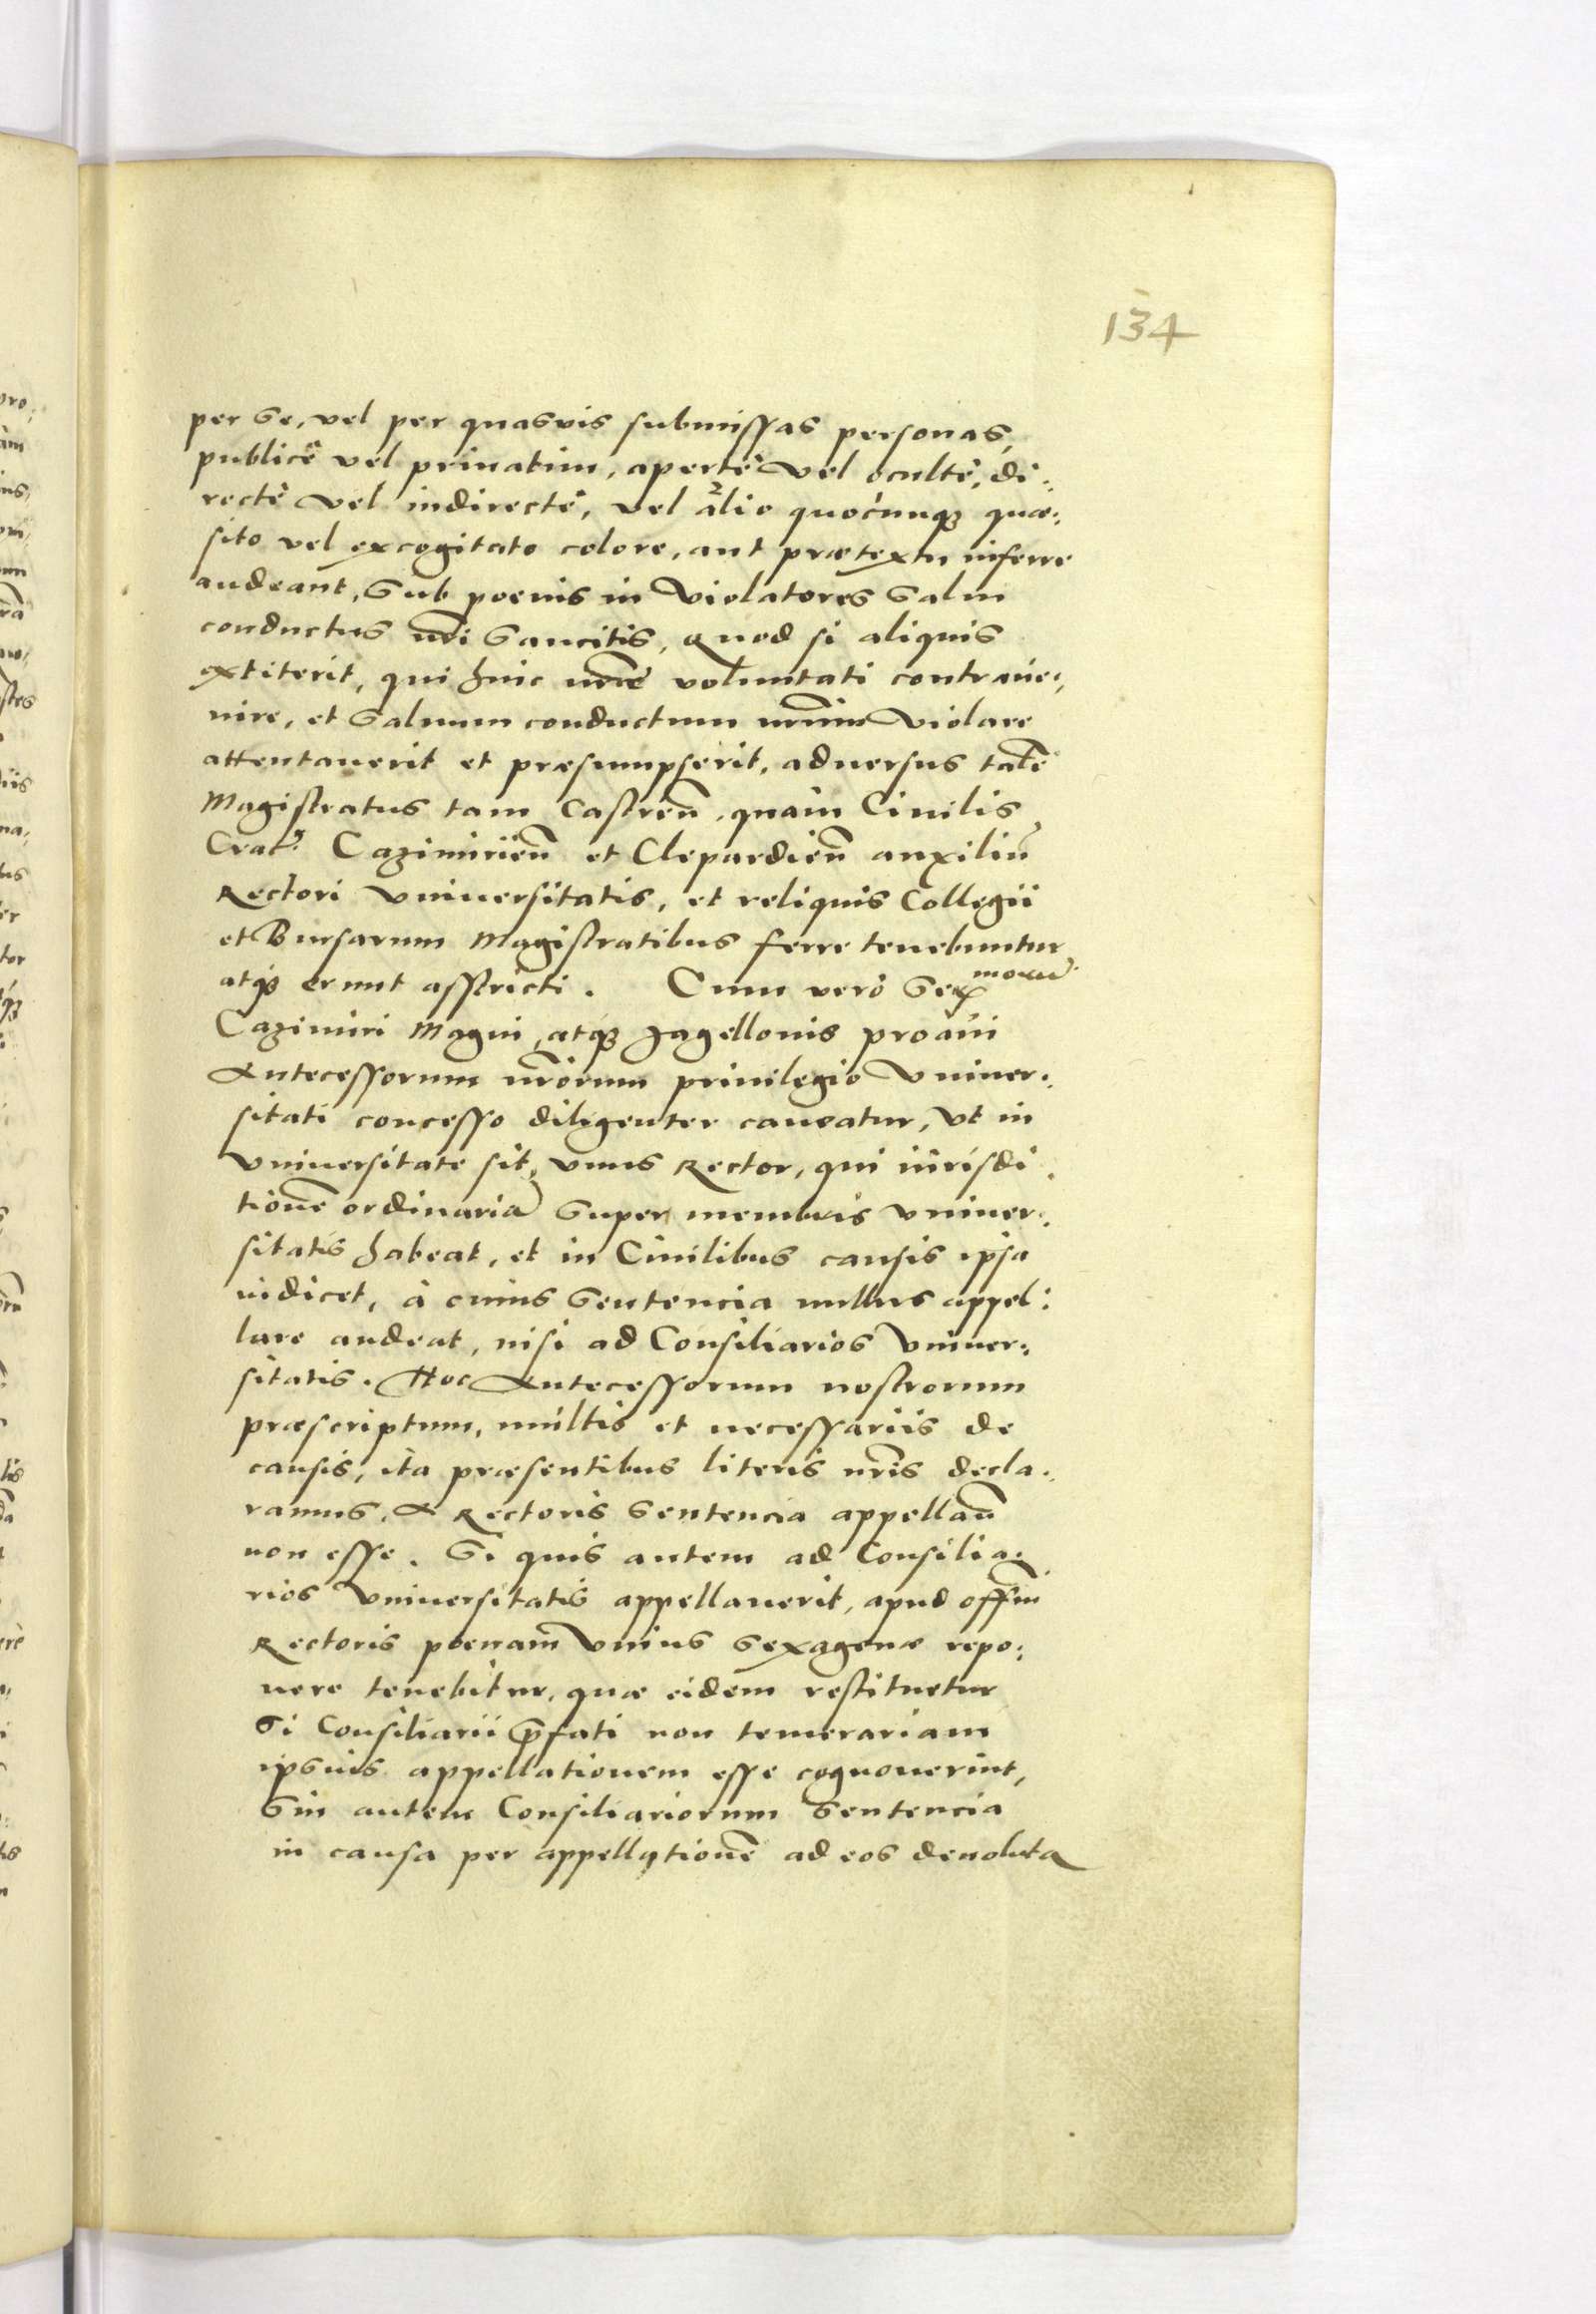 134
per se, vel per quasvis submissas personas,
publicè vel priuatim, apertè vel ocultè, di:
rectè vel indirectè, vel alio quocunq3 quæ:
sito vel excogitato colore, aut prætextu inferre
audeant, sub poenis in violatores salui
conductus nri sancitis, Quod si aliquis
extiterit, qui huic nræ voluntati contraue:
nire, et saluum conductum nrum violare
attentauerit et præsumpserit, aduersus talē
Magistratus tam Castreñ, quàm Ciuilis
Crac: Cazimirieñ et Clepardieñ auxiliū
Rectori Vniuersitatis, et reliquis Collegii
et Bursarum Magistratibus ferre tenebuntur
atq3 erunt asstricti. Cum verò
Cazimiri Magni, atq3 Jagellonis proaui
Antecessorum nrorum priuilegio Vniuer:
sitati concesso diligenter caueatur, vt in
Vniuersitate sit, vnus Rector, qui iurisdi:
tionē ordinariā super membris Vniuer:
sitatis habeat, et in Ciuilibus causis ipsa
iudicet, à cuius sentencia nullus appel:
lare audeat, nisi ad Consiliarios Vniuer:
sitatis. Hoc Antecessorum nostrorum
præscriptum, multis et necessariis de
causis, ità præsentibus literis nris decla:
ramus, A Rectoris sentencia appellañ
non esse. Si quis autem ad Consilia:
rios Vniuersitatis appellauerit, apud offm
Rectoris poenam vnius sexagenæ repo:
nere tenebitur, quæ eidem restituetur
Si Consiliarii pfati non temerariam
ipsius appellationem esse cognouerint,
Sin autem Consiliariorum sentencia
in causa per appellationē ad eos deuoluta